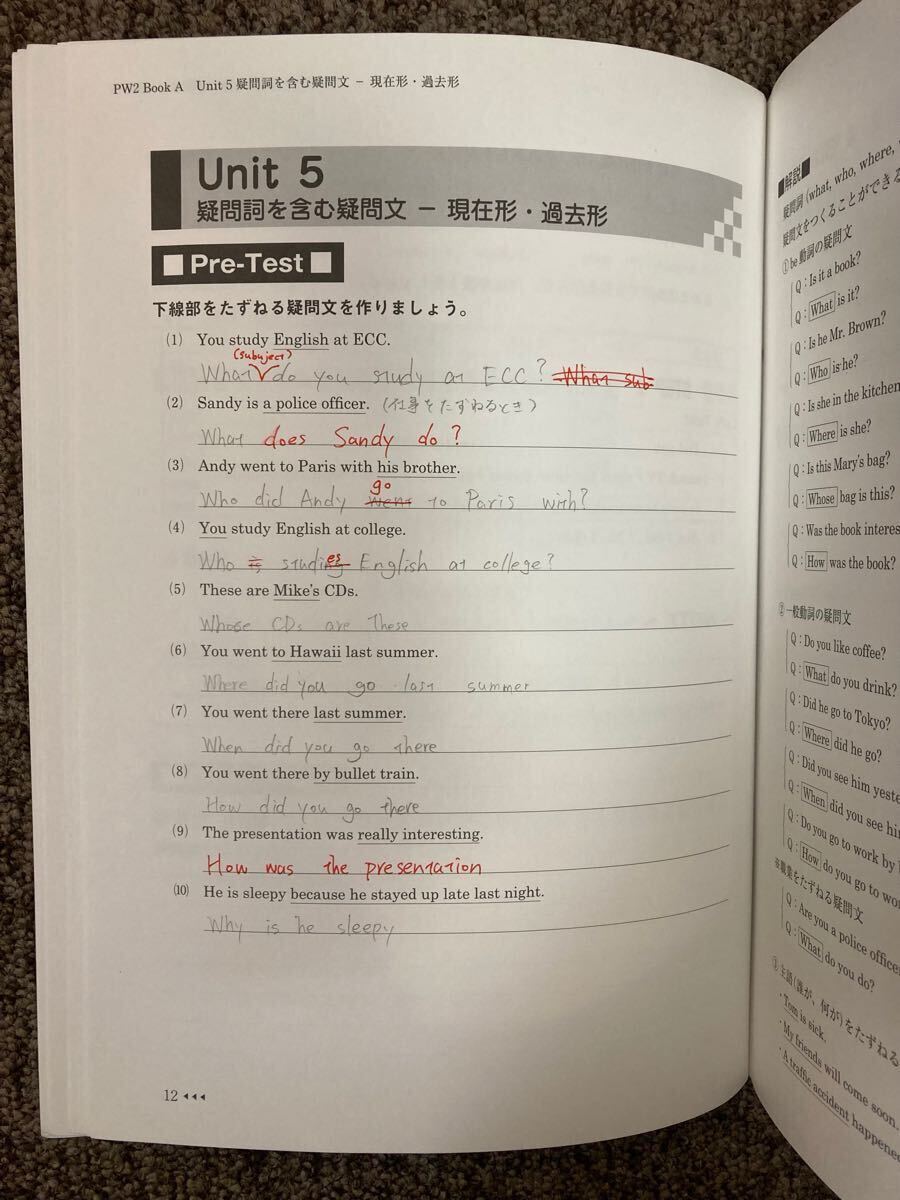 PW2 Book A Unit 5 疑問詞を含む疑問文 − 現在形・過去形
Unit 5
疑問詞を含む疑問文 − 現在形・過去形
■ Pre-Test ■
下線部をたずねる疑問文を作りましょう。
(1) You study English at ECC.
(subuject)
What do you study at ECC? What sub
(2) Sandy is a police officer. (仕事をたずねるとき)
What does Sandy do?
(3) Andy went to Paris with his brother.
go
Who did Andy went to Paris with?
(4) You study English at college.
Who studies English at college?
(5) These are Mike's CDs.
Whose CDs are these
(6) You went to Hawaii last summer.
Where did you go last summer
(7) You went there last summer.
When did you go there
(8) You went there by bullet train.
How did you go there
(9) The presentation was really interesting.
How was the presentation
(10) He is sleepy because he stayed up late last night.
Why is he sleepy
12 ◀◀◀
■解説■
疑問詞 (what, who, where,
疑問文をつくることができる
① be 動詞の疑問文
Q : Is it a book?
Q : What is it?
Q : Is he Mr. Brown?
Q : Who is he?
Q : Is she in the kitchen
Q : Where is she?
Q : Is this Mary's bag?
Q : Whose bag is this?
Q : Was the book
Q : How was the book?
② 一般動詞の疑問文
Q : Do you like coffee?
Q : What do you drink?
Q : Did he go to Tokyo?
Q : Where did he go?
Q : Did you see him
Q : When did you see him
Q : Do you go to work by
Q : How do you go to
※職業をたずねる疑問文
Q : Are you a police
Q : What do you do?
③ 主語(誰が、何が)をたずねる
・Tom is sick.
・My friends will come soon.
・A traffic accident happened